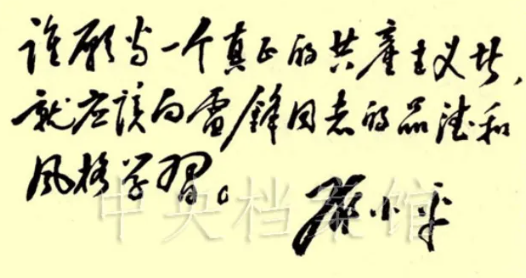 谁愿当一个真正的共产主义者，
就应该向雷锋同志的品德和
风格学习。
邓小平
中央档案馆